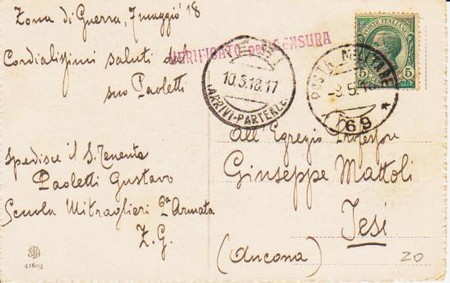 Zona di Guerra, 7 maggio 18
Cordialissimi saluti dal
suo Paoletti
Spedisce il S. Tenente
Paoletti Gustavo
Scuola Mitraglieri 6a Armata
Z. G.
VERIFICATO per CENSURA
JESI
10.5.18.17
(ARRIVI-PARTENZE)
POSTA MILITARE
-8.5.18
69
POSTE ITALIANE
5 5
All'Egregio Professore
Giuseppe Mattoli
Jesi
(Ancona)
20